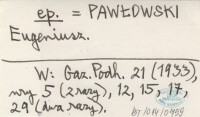 ep. = PAWŁOWSKI
Eugeniusz.
W: Gaz. Podh. 21 (1933),
nry 5 (2 razy), 12, 15, 17,
29 (dwa razy).